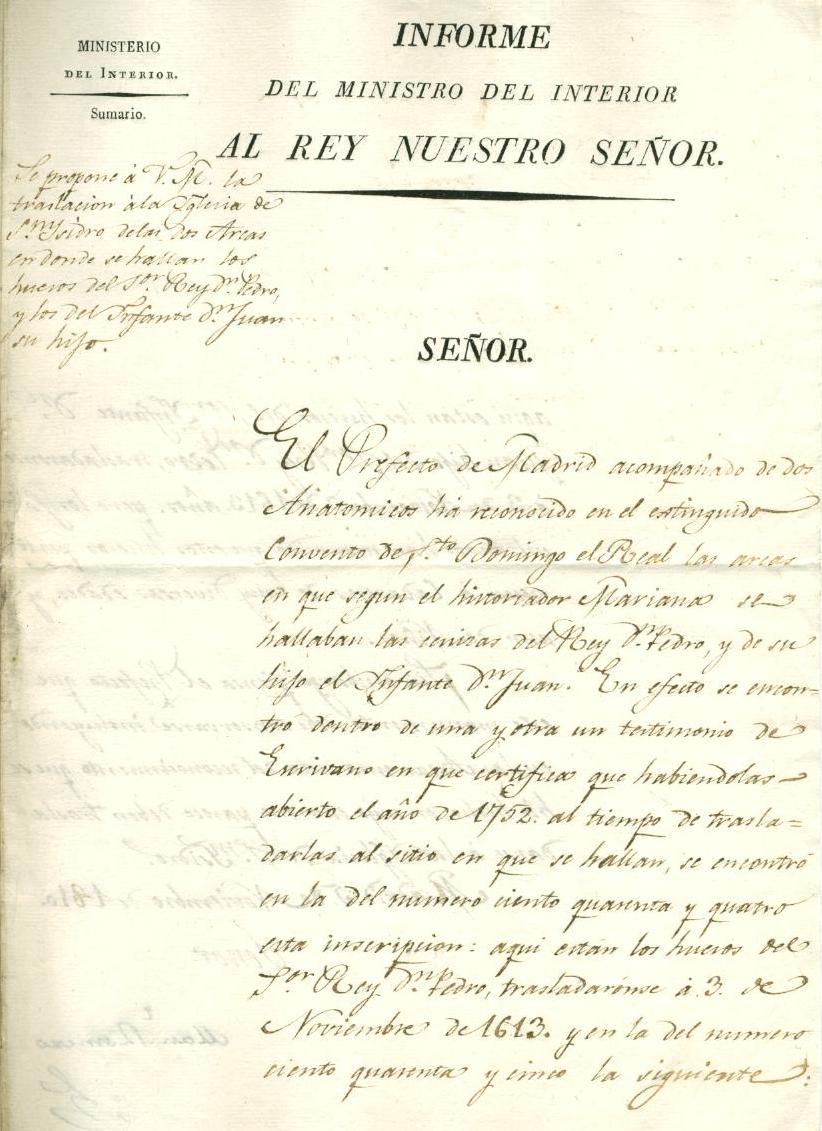 MINISTERIO
DEL INTERIOR.
Sumario.
INFORME
DEL MINISTRO DEL INTERIOR
AL REY NUESTRO SEÑOR.
Se propone à V. M. la
traslacion à la Yglesia de
Sn. Isidro de las dos Arcas
en donde se hallan los
huesos del Sor. Rey Dn. Pedro,
y los del Infante Dn. Juan
su hijo.
SEÑOR.
El Prefecto de Madrid acompañado de dos
Anatomicos ha reconocido en el extinguido
Convento de Sto. Domingo el Real las arcas
en que segun el historiador Mariana se
hallaban las cenizas del Rey Dn. Pedro, y de su
hijo el Infante Dn. Juan. En efecto se encon-
tro dentro de una y otra un testimonio de
Escrivano en que certifica que habiendolas
abierto el año de 1752. al tiempo de trasla=
darlas al sitio en que se hallan, se encontró
en la del numero ciento quarenta y quatro
esta inscripcion: aqui estan los huesos del
Sor. Rey Dn. Pedro, trasladarónse à 3. de
Noviembre de 1613. y en la del numero
ciento quarenta y cinco la siguiente: